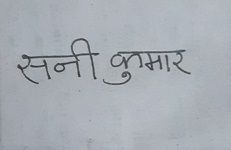 सनी कुमार